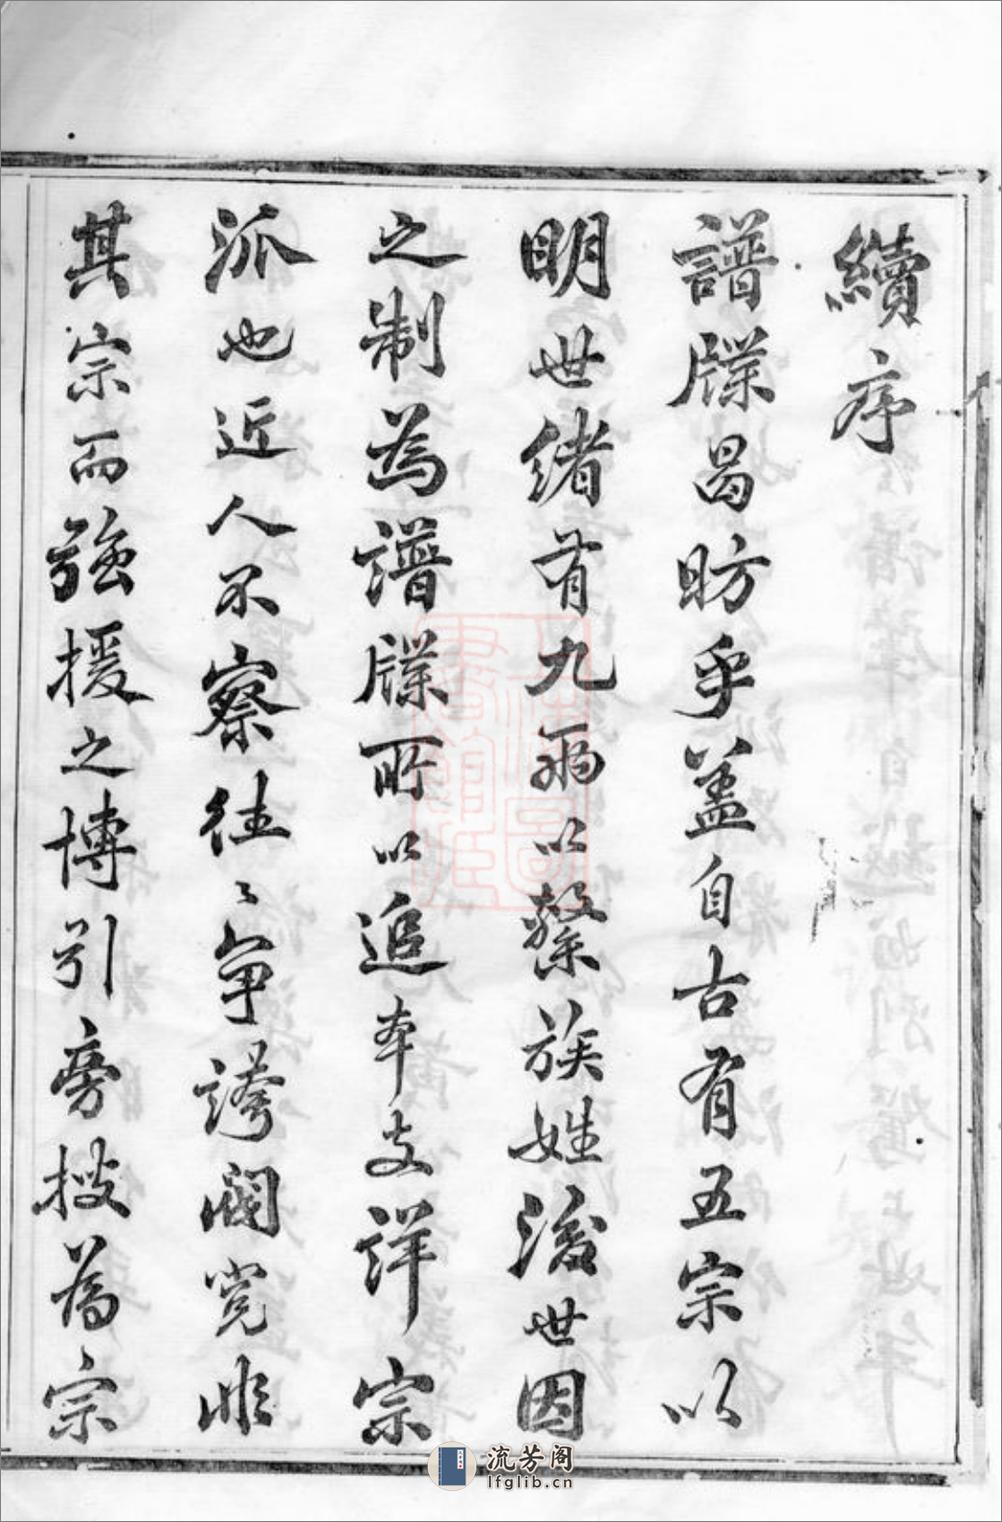 續序
譜牒曷昉乎盖自古有五宗以
明世緒有九兩以繫族姓後世因
之制為譜牒所以追本支詳宗
派也近人不察徃〻爭誇閥覽非
其宗而強援之博引旁搜為宗
流芳阁
lfglib.cn